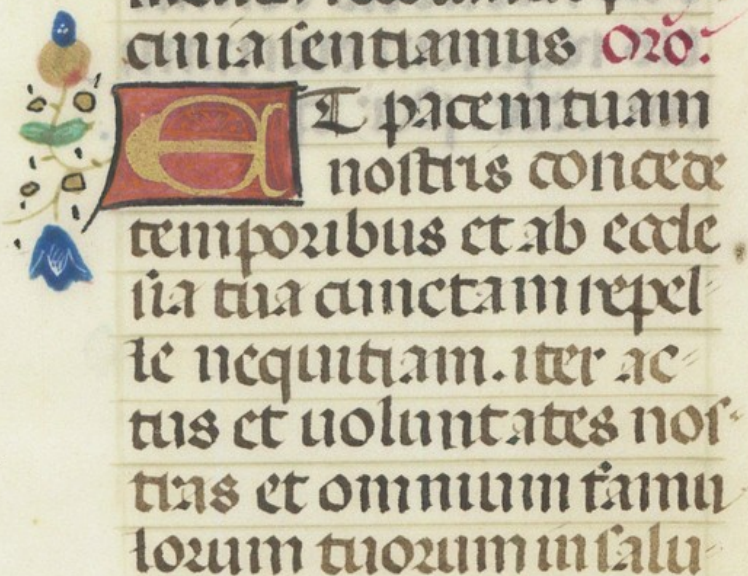 ciuia sentiamus Oro:
ET pacem tuam
nostris concede
temporibus et ab eccle
sia tua cunctam repel-
le nequitiam. iter ac-
tus et uoluntates nos-
tras et omnium famu
lorum tuorum in salu-